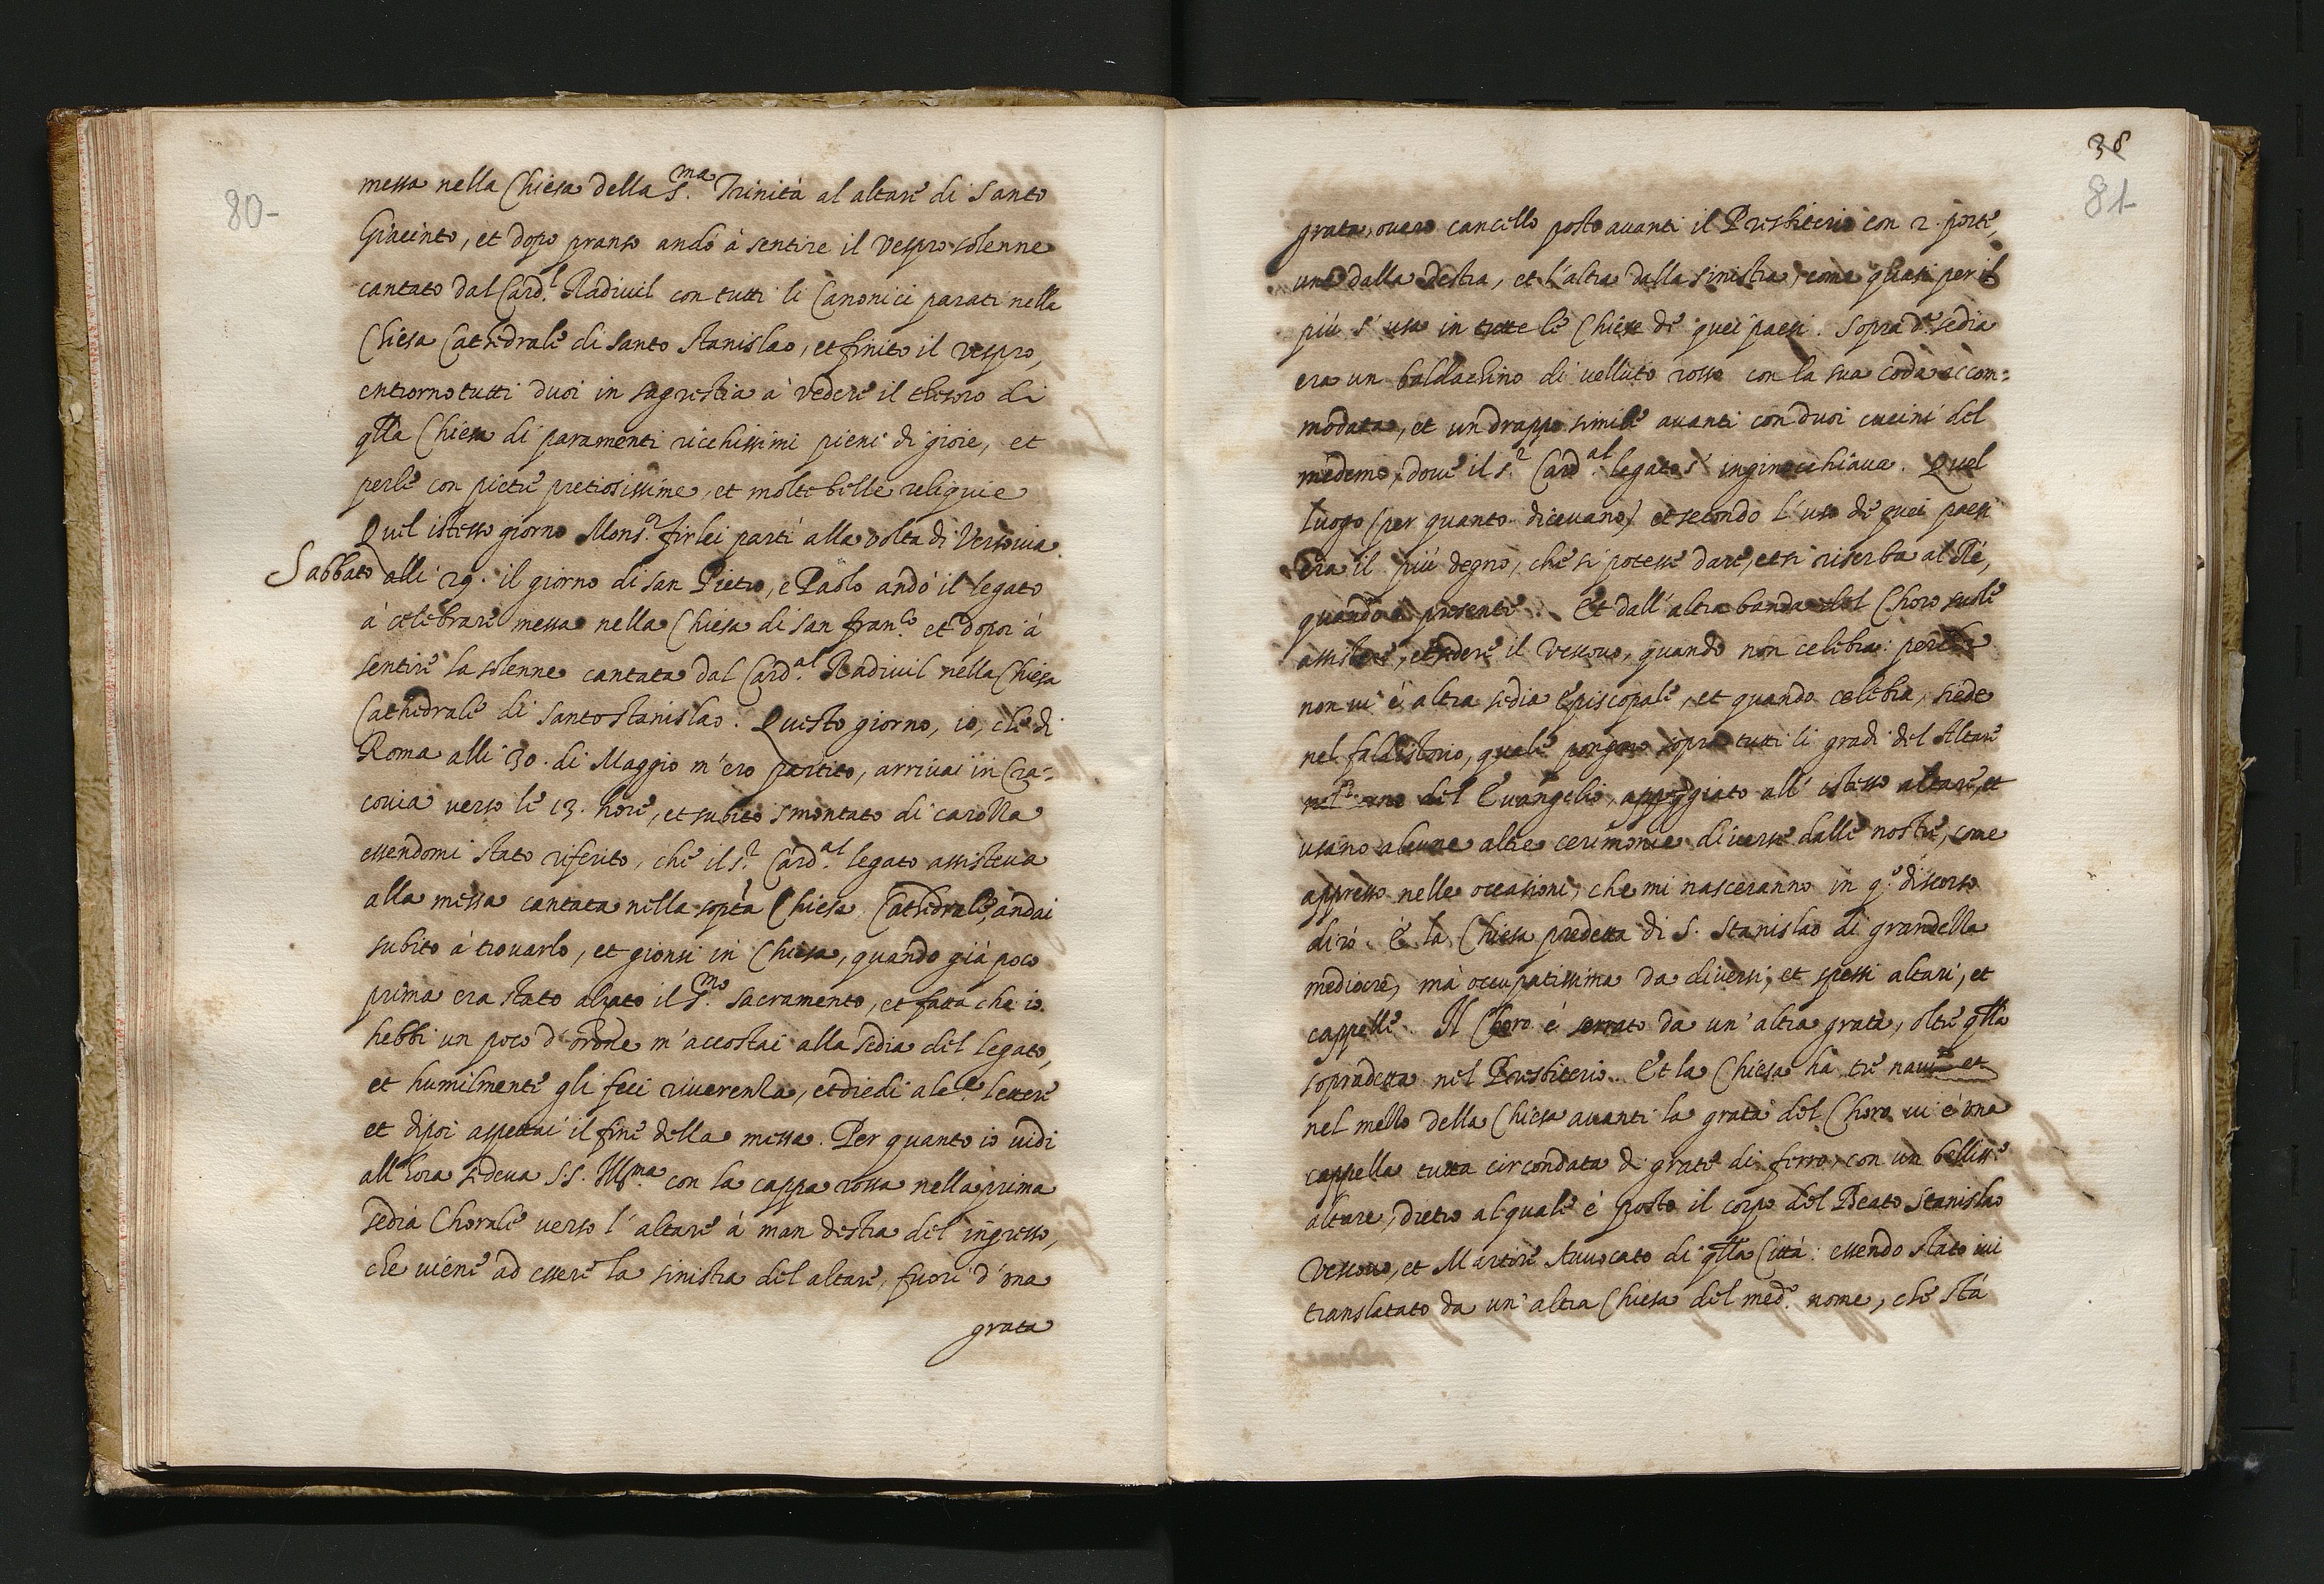 80-
messa nella Chiesa della S.ma Trinità al altare di Santo
Giacinto, et dopo pranso andò à sentire il Vespro solenne
cantato dal Card.l Radivil con tutti li Canonici parati nella
Chiesa Cathedrale di Santo Stanislao, et finito il vespro,
entrorno tutti duoi in sagrestia à vedere il thesoro di
qlla Chiesa di paramenti ricchissimi pieni di gioie, et
perle con pietre pretiosissime, et molte belle reliquie
Quel istesso giorno Mons.r firlei partì alla volta di Versovia.
Sabbato alli 29. il giorno di San Pietro, e Paolo andò il legato
à celebrare messa nella Chiesa di San fran.co et dopoi à
sentire la solenne cantata dal Card.al Radivil nella Chiesa
Cathedrale di Santo Stanislao. Questo giorno, io, che di
Roma alli 30. di Maggio m'ero partito, arrivai in Cra-
covia verso le 13. hore, et subito smontato di carozza
essendomi stato riferito, che il S.r Card.al legato assisteva
alla messa cantata nella sopta Chiesa Cathedrale, andai
subito à trovarlo, et gionsi in Chiesa, quando già poco
prima era stato alzato il S.mo Sacramento, et fatta che io
hebbi un poco d'ordne m'accostai alla sedia del legato,
et humilmente gli feci riverenza, et diedi alc.e lettere
et dipoi aspettai il fine della messa. Per quanto io vidi
all'hora sedeva S.S. Ill.ma con la cappa rossa nella prima
sedia Chorale verso l'altare à man destra del ingresso,
che viene ad essere la sinistra del altare, fuori d'una
grata
38
81-
grata, overo cancello posto avanti il Presbiterio con 2. porte,
una dalla destra, et l'altra dalla sinistra, come quasi per il
più s'usa in tutte le Chiese de quei paesi. Sopra d.a sedia
era un baldachino di velluto rosso con la sua coda accom=
modata, et un drappo simile avanti con duoi cucini del
medemo, dove il S.r Card.al legato s'inginocchiava. Quel
luogo (per quanto dicevano) et secondo l'uso de quei paesi
era il più degno, che si potesse dare, et si riserba al Rè,
quando è presente. Et dall'altra banda del Choro suole
assistere, et sedere il vescovo, quando non celebra: perche
non vi è altra sedia Episcopale, et quando celebra, siede
nel faldistorio, quale pongono sopra tutti li gradi del Altare
nel del Evangelio, appoggiato all'istesso altare, et
usano alcune altre cerimonie diverse dalle nostre, come
appresso nelle occasioni, che mi nasceranno in q.o discorso
dirò. È la Chiesa predetta di S. Stanislao di grandezza
mediocre, mà occupatissima da diversi, et spessi altari, et
cappelle. Il Choro è serrato da un'altra grata, oltre qlla
sopradetta nel Presbiterio. Et la Chiesa hà tre navi et
nel mezzo della Chiesa avanti la grata del Choro vi è una
cappella tutta circondata di grate di ferro, con un bellisse
altare, dietro al quale è posto il corpo del Beato Stanislao
Vescovo, et Martore Avvocato di qlla Città: essendo stato ivi
translatato da un'altra Chiesa del med.o nome, che stà